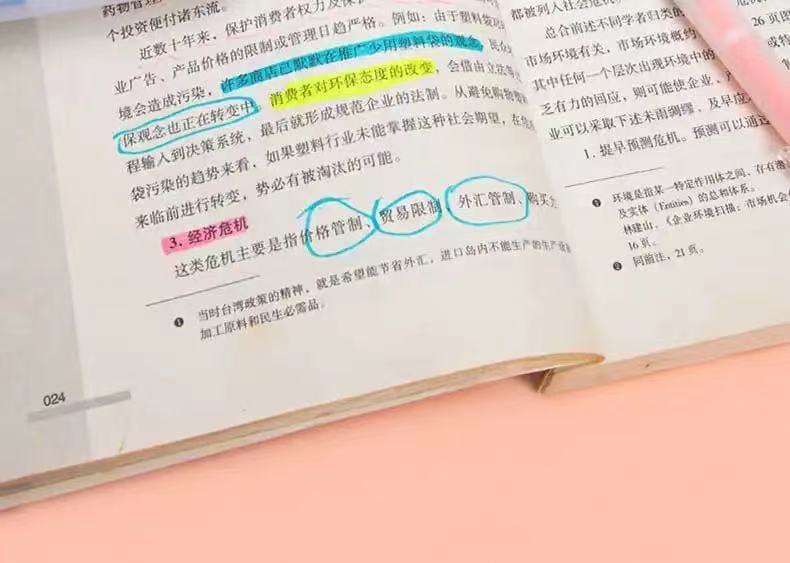 药物管理
个投资便付诸东流。
近数十年来，保护消费者权力及保
业广告、产品价格的限制或管理日趋严格。例如：由于塑料袋
境会造成污染，许多商店已默默在推广少用塑料袋的观念
保观念也正在转变中，消费者对环保态度的改变，会借由立法等
程输入到决策系统，最后就形成规范企业的法制。从避免购物塑
袋污染的趋势来看，如果塑料行业未能掌握这种社会期望，在
来临前进行转变，势必有被淘汰的可能。
3. 经济危机
这类危机主要是指价格管制、贸易限制、外汇管制、购买
❶ 当时台湾政策的精神，就是希望能节省外汇，进口岛内不能生产的生产
加工原料和民生必需品。
024
都被列入社会危机
总合前述不同学者归类的
市场环境有关，市场环境概约
其中任何一个层次出现环境中的
乏有力的回应，则可能使企业、产
业可以采取下述未雨绸缪、及早
1. 提早预测危机。预测可以通过
❶ 环境是指某一特定作用体之间，存有
及实体（Entities）的总和体系。
林建山，《企业环境扫描：市场机会
16页。
❷ 同前注，21页。
26页图
或特